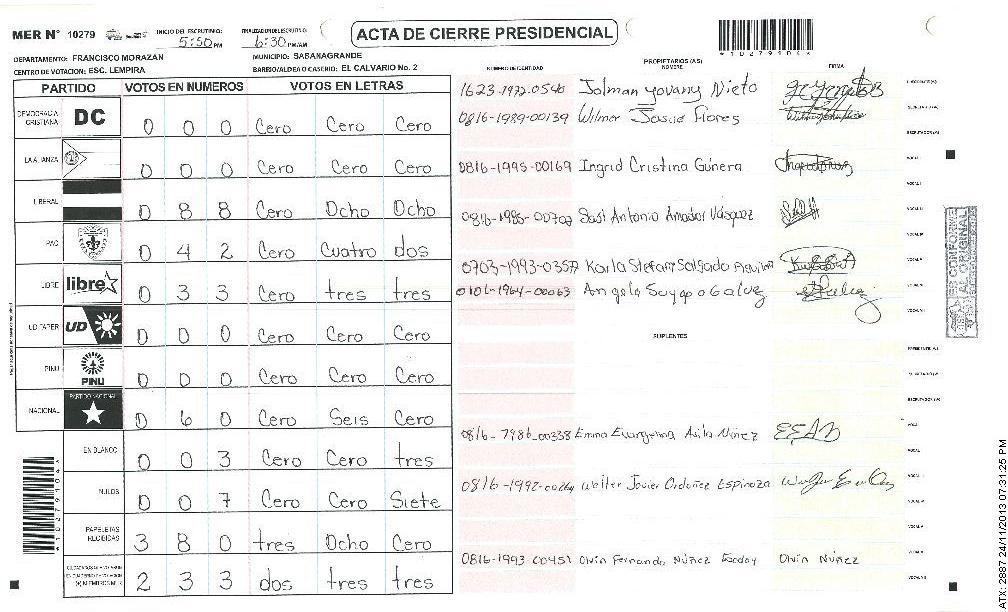 MER N° 10279
INICIO DEL ESCRUTINIO: 5:50 PM
FINALIZACION DEL ESCRUTINIO: 6:30 PM/AM
ACTA DE CIERRE PRESIDENCIAL
*10279104*
DEPARTAMENTO: FRANCISCO MORAZAN
MUNICIPIO: SABANAGRANDE
CENTRO DE VOTACION: ESC. LEMPIRA
BARRIO/ALDEA O CASERIO: EL CALVARIO No. 2
PARTIDO VOTOS EN NUMEROS VOTOS EN LETRAS
DEMOCRACIA CRISTIANA DC 0 0 0 Cero Cero Cero
LA ALIANZA 0 0 0 Cero Cero Cero
LIBERAL 0 8 8 Cero Ocho Ocho
PAC 0 4 2 Cero Cuatro dos
LIBRE libre 0 3 3 Cero tres tres
UD FAPER UD 0 0 0 Cero Cero Cero
PINU PINU 0 0 0 Cero Cero Cero
NACIONAL PARTIDO NACIONAL 0 6 0 Cero Seis Cero
EN BLANCO 0 0 3 Cero Cero tres
NULOS 0 0 7 Cero Cero Siete
PAPELETAS RECIBIDAS 3 8 0 tres Ocho Cero
2 3 3 dos tres tres
*10279104*
NUMERO DE IDENTIDAD
PROPIETARIOS (AS)
NOMBRE
FIRMA
1623-1972-0540 Jolman Yovany Nieto
0816-1989-00139 Wilmer Josue Flores
0816-1995-00169 Ingrid Cristina Gúnera
0816-1985-00702 Antonio Amador Vásquez
0703-1993-0357 Karla Stefani Salgado Aguilar
0101-1964-00063 Angela Sayapo Galvez
SUPLENTES
0816-7986-00338 Emma Evangelina Avila Núñez
0816-1992-00264 Walter Javier Ordoñez Espinoza
0816-1993-00451 Olvin Fernando Núñez Olvin Núñez
ES CONFORME AL ORIGINAL
ATX: 2887 24/11/2013 07:31:25 PM